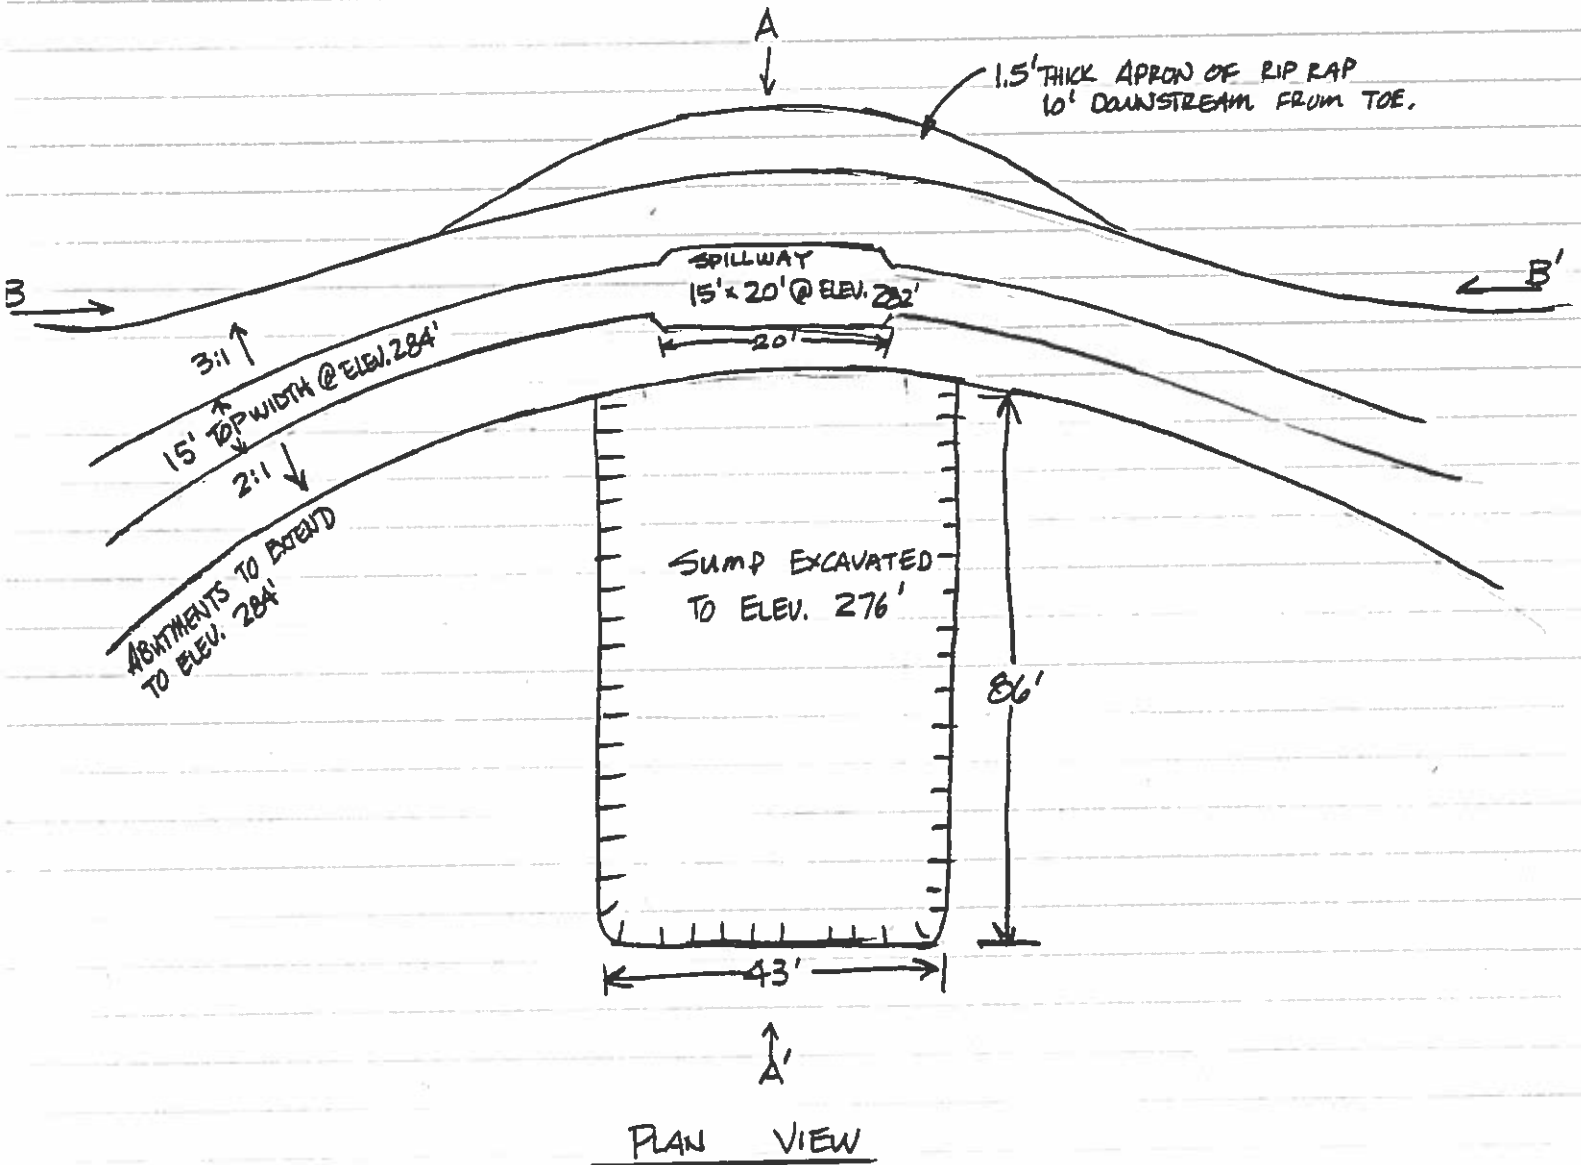 A
1.5' THICK APRON OF RIP RAP
10' DOWNSTREAM FROM TOE.
B
B'
SPILLWAY
15' x 20' @ ELEV. 282'
20'
3:1
15' TOP WIDTH @ ELEV. 284'
2:1
ABUTMENTS TO EXTEND
TO ELEV. 284'
SUMP EXCAVATED
TO ELEV. 276'
86'
43'
A'
PLAN VIEW